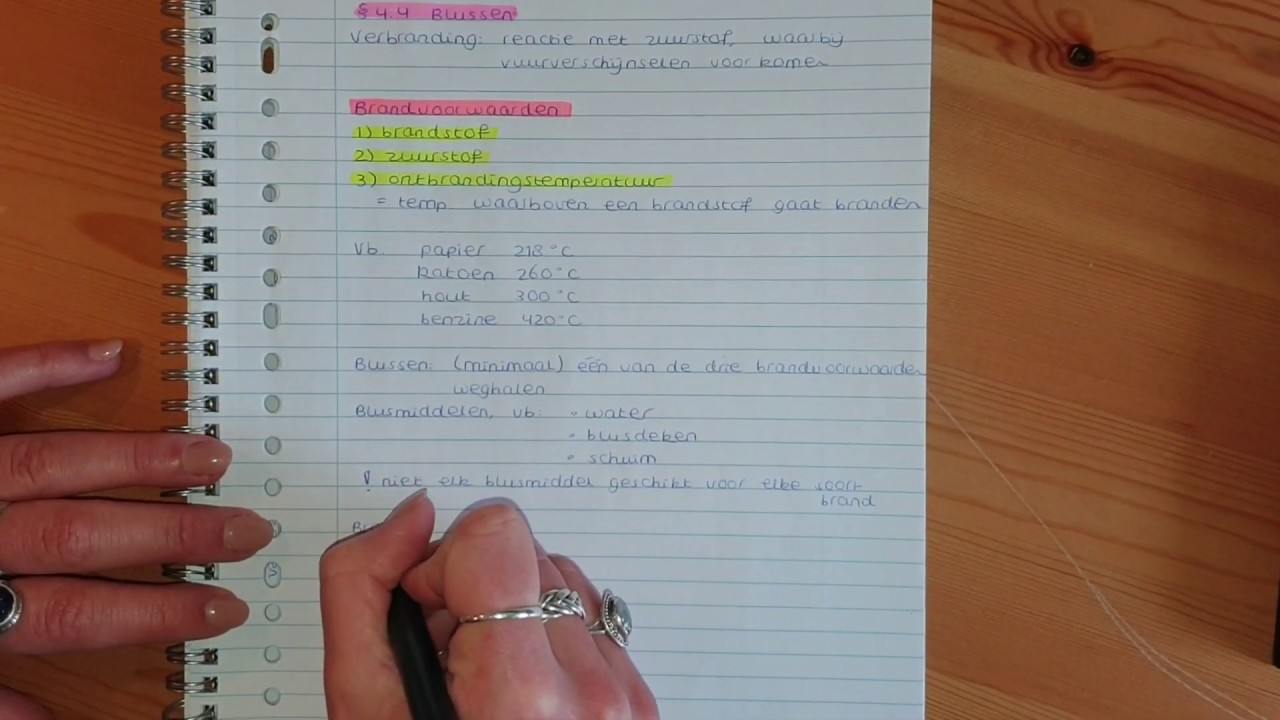 § 4.4 Blussen
Verbranding: reactie met zuurstof, waarbij
vuurverschijnselen voorkomen
Brandvoorwaarden
1) brandstof
2) zuurstof
3) ontbrandingstemperatuur
= temp waarboven een brandstof gaat branden
Vb. papier 218 °C
katoen 260 °C
hout 300 °C
benzine 420 °C
Blussen: (minimaal) één van de drie brandvoorwaarden
weghalen
Blusmiddelen, vb: • water
• blusdeken
• schuim
! niet elk blusmiddel geschikt voor elke soort
brand